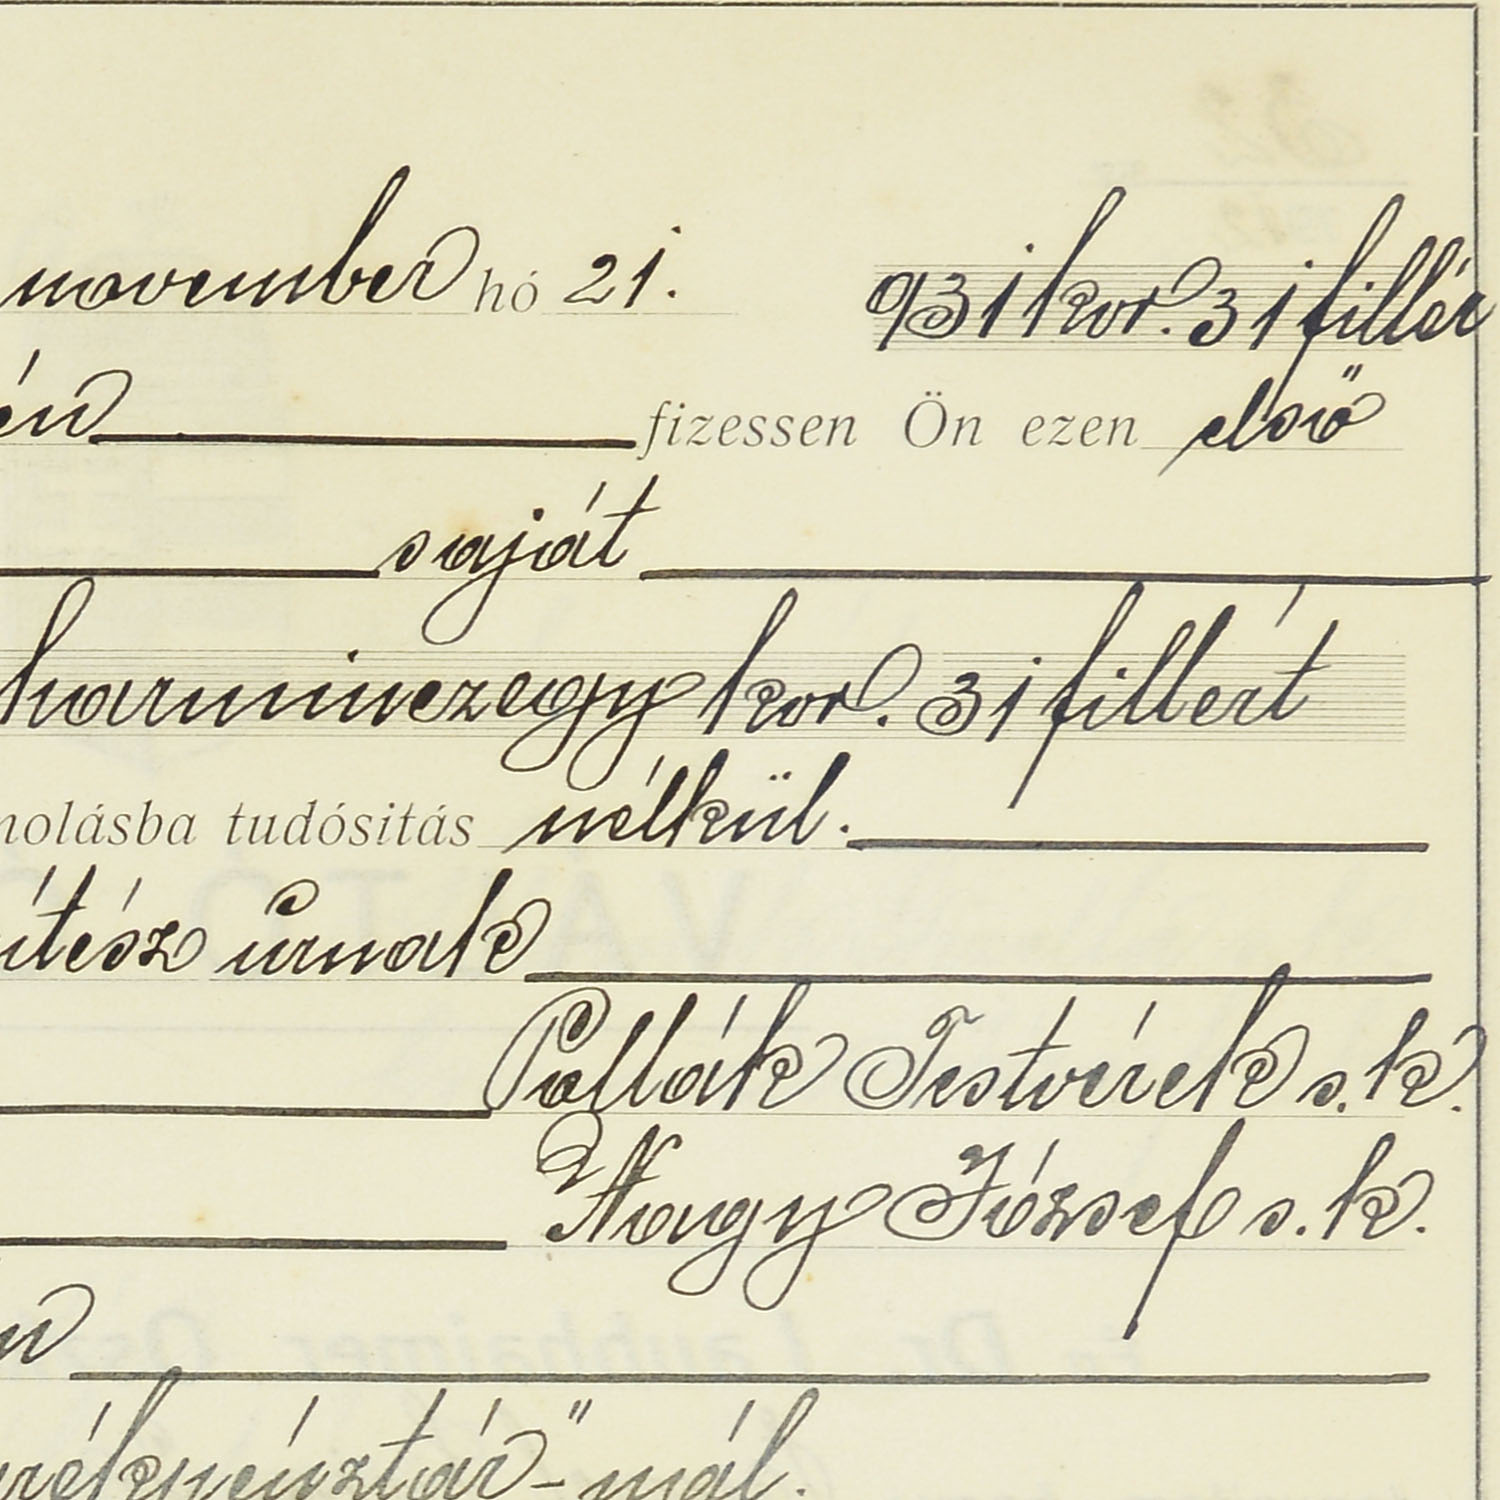 november hó 21. 931 kor. 31 fillér
én fizessen Ön ezen első
saját
harminczegy kor. 31 fillért
molásba tudósitás nélkül.
ítész úrnak
Pollák Testvérek s. k.
Nagy József s. k.
n
rékpénztár"-nál.